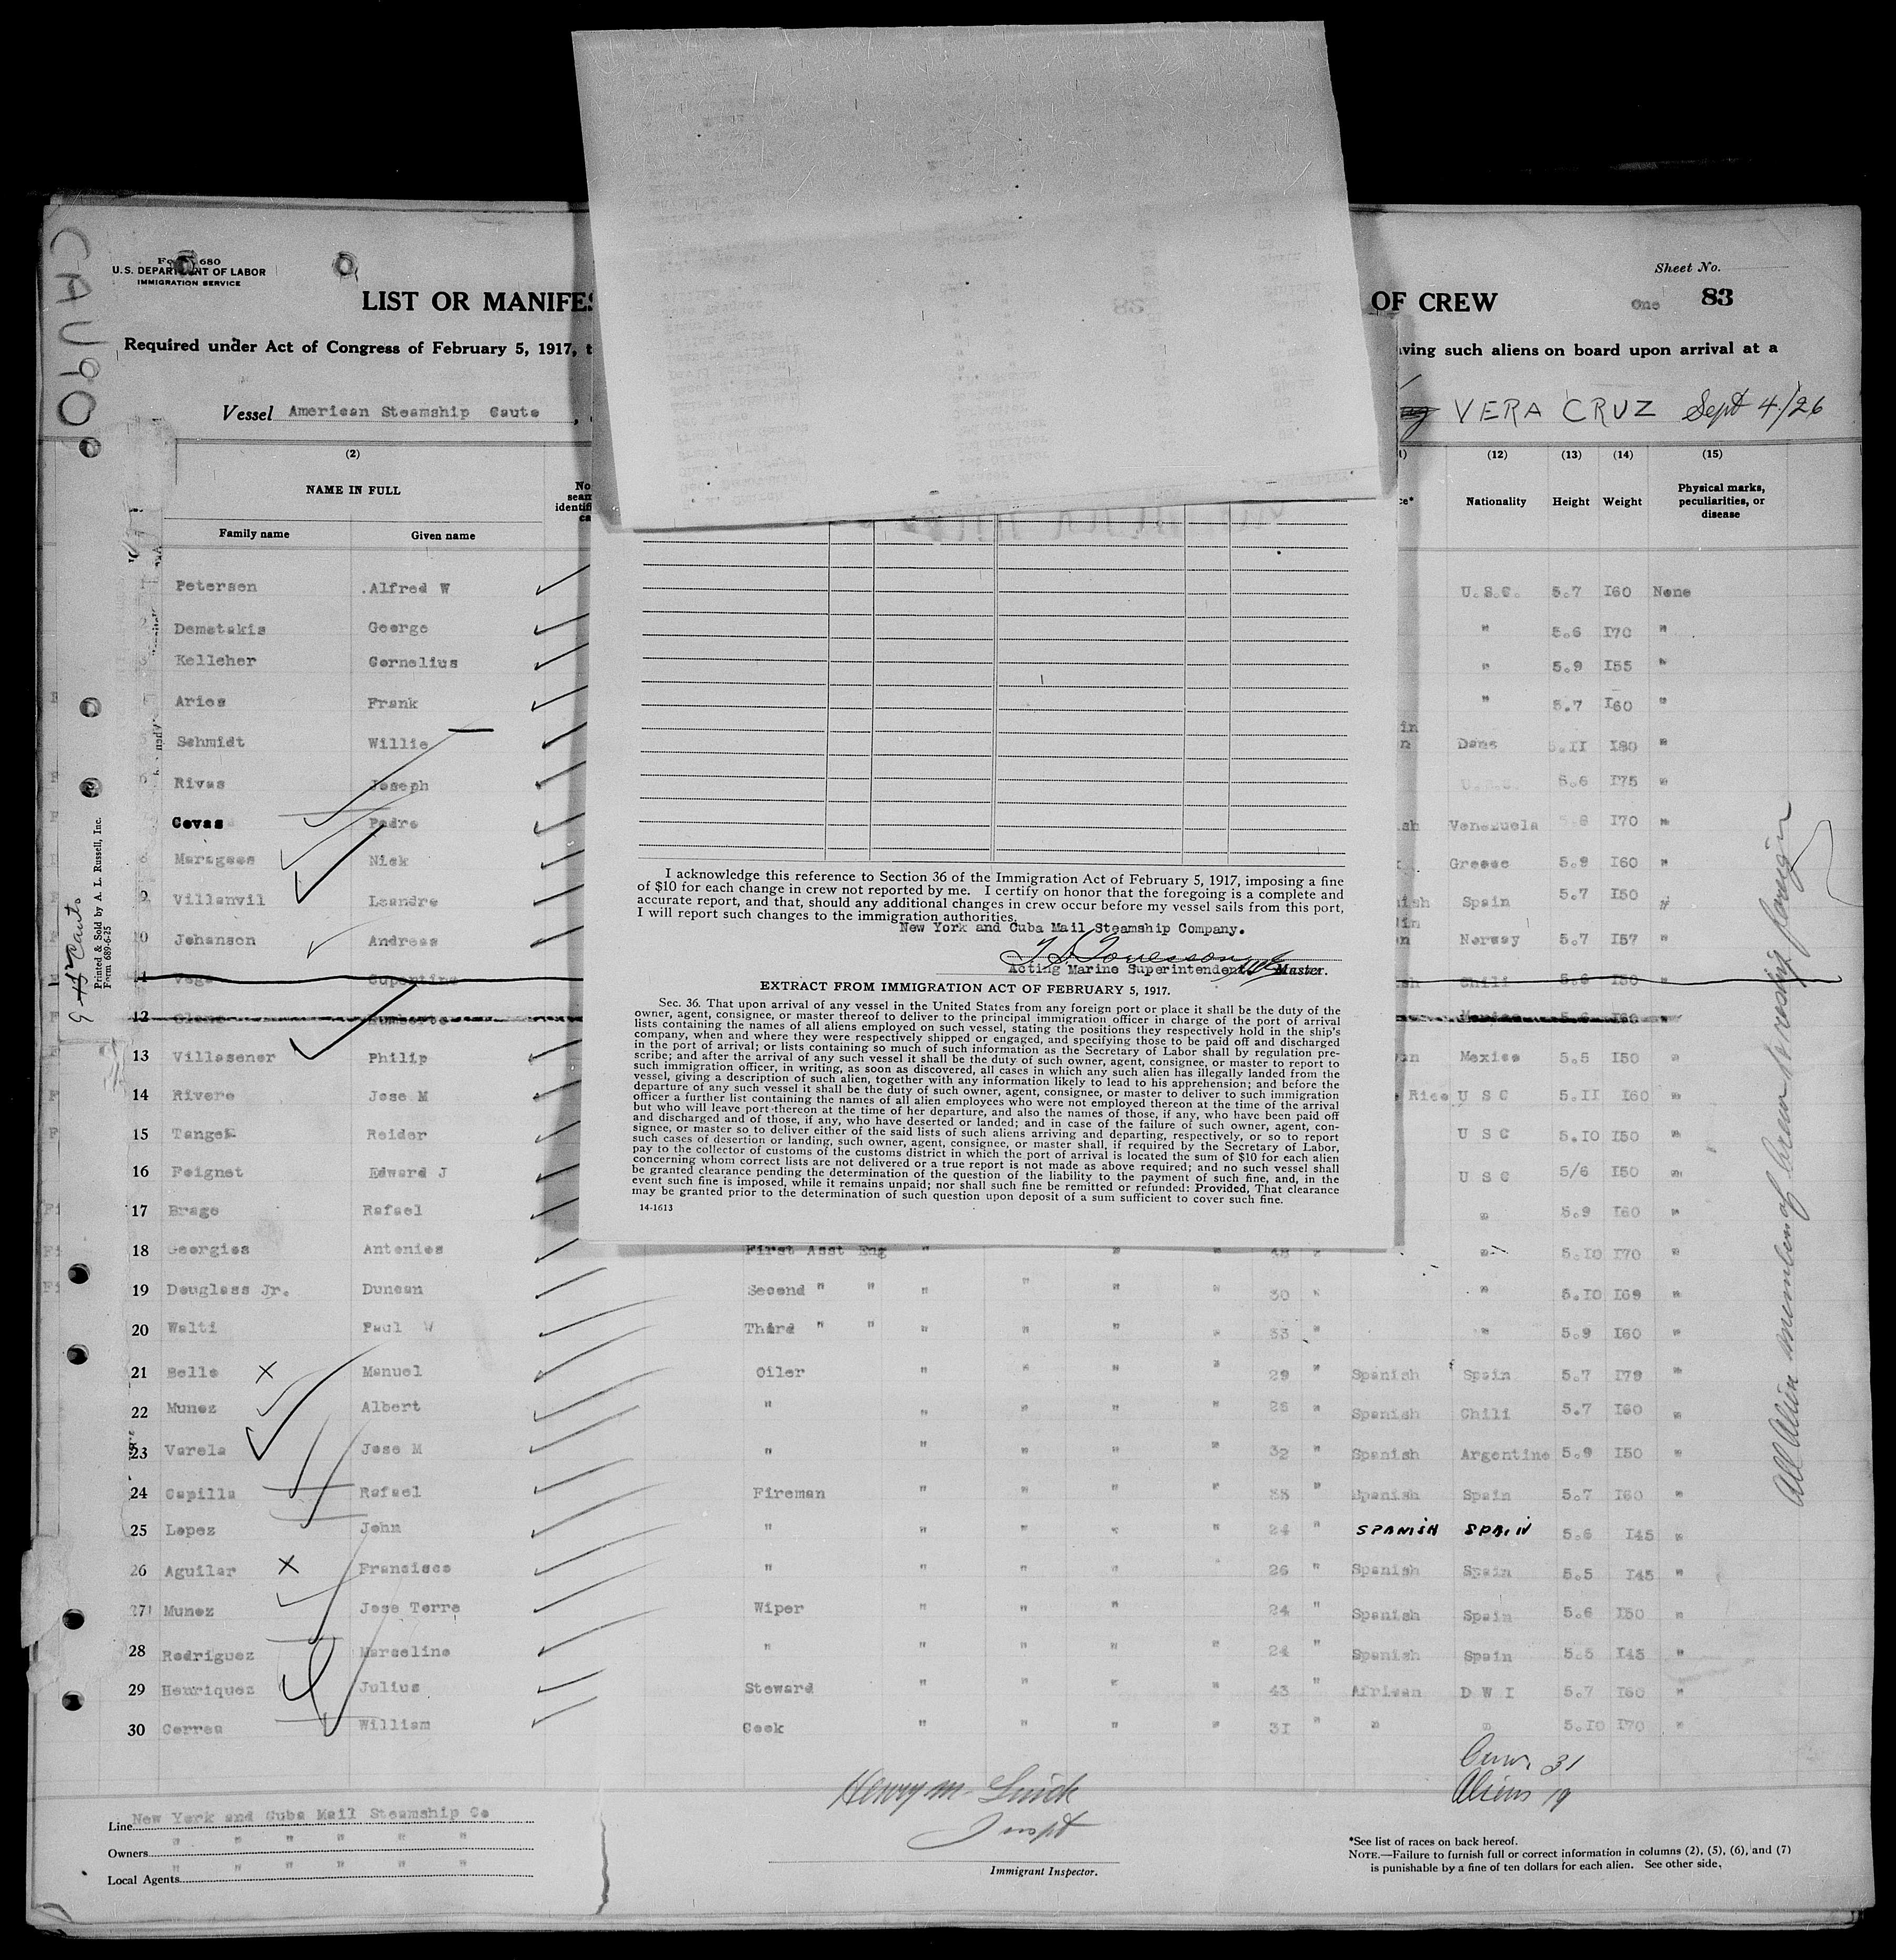 CAU90
Form 680
U.S. DEPARTMENT OF LABOR
IMMIGRATION SERVICE
Sheet No.
LIST OR MANIFES
OF CREW
One 83
Required under Act of Congress of February 5, 1917, t
ving such aliens on board upon arrival at a
Vessel American Steamship Cauto ,
VERA CRUZ Sept 4/26
(2) (12) (13) (14) (15)
NAME IN FULL
Nationality Height Weight Physical marks, peculiarities, or disease
Family name Given name
1 Petersen Alfred W U.S.C. 5.7 I60 None
2 Demetakis George " 5.6 I70 "
3 Kelleher Cornelius " 5.9 I55 "
Aries Frank " 5.7 I60 "
5 Schmidt Willie Dane 5.II I80 "
6 Rivas Joseph 5.6 I75 "
Covas Pedro sh Venezuela 5.8 I70 "
8 Maragees Nick Greece 5.9 I60 "
9 Villanvil Leandre ish Spain 5.7 I50 "
10 Johanson Andreas Norway 5.7 I57 "
11 Vega Chili 5.6 I50
12 Humberto Mexico 5.6 I60
13 Villasener Philip Mexico 5.5 I50 "
14 Rivere Jose M Rico U S C 5.II I60 "
15 Tangen Reider U S C 5.IO I50 "
16 Feignet Edward J U S C 5/6 I50 "
17 Brage Rafael " 5.9 I60 "
18 Georgies Antonios First Asst Eng " " " 48 " " 5.IO I70 "
19 Douglass Jr. Duncan Second " " " " " " 30 " " 5.IO I69 "
20 Walti Paul W Third " " " " " " 33 " " 5.9 I60 "
21 Bello X Manuel Oiler " " " " 29 " Spanish Spain 5.7 I79 "
22 Munez Albert " " " " " 26 " Spanish Chili 5.7 I60 "
23 Varela Jose M " " " " " 32 " Spanish Argentine 5.9 I50 "
24 Capilla Rafael Fireman " " " " 35 " Spanish Spain 5.7 I60 "
25 Lopez John " " " " " 24 " SPANISH SPAIN 5.6 I45 "
26 Aguilar X Francisco " " " " 26 " Spanish Spain 5.5 I45 "
27 Munez Jose Torre Wiper " " " " 24 " Spanish Spain 5.6 I50 "
28 Rodriguez Marcelino " " " " " 24 " Spanish Spain 5.5 I45 "
29 Henriquez Julius Steward " " " " 43 " African D W I 5.7 I60 "
30 Correa William Cook " " " " 31 " " " 5.IO I70 "
Printed & Sold by A. L. Russell, Inc.
Form 689-6-25
I acknowledge this reference to Section 36 of the Immigration Act of February 5, 1917, imposing a fine
of $10 for each change in crew not reported by me. I certify on honor that the foregoing is a complete and
accurate report, and that, should any additional changes in crew occur before my vessel sails from this port,
I will report such changes to the immigration authorities.
New York and Cuba Mail Steamship Company.
Acting Marine Superintendent. Master.
EXTRACT FROM IMMIGRATION ACT OF FEBRUARY 5, 1917.
Sec. 36. That upon arrival of any vessel in the United States from any foreign port or place it shall be the duty of the
owner, agent, consignee, or master thereof to deliver to the principal immigration officer in charge of the port of arrival
lists containing the names of all aliens employed on such vessel, stating the positions they respectively hold in the ship's
company, when and where they were respectively shipped or engaged, and specifying those to be paid off and discharged
in the port of arrival; or lists containing so much of such information as the Secretary of Labor shall by regulation pre-
scribe; and after the arrival of any such vessel it shall be the duty of such owner, agent, consignee, or master to report to
such immigration officer, in writing, as soon as discovered, all cases in which any such alien has illegally landed from the
vessel, giving a description of such alien, together with any information likely to lead to his apprehension; and before the
departure of any such vessel it shall be the duty of such owner, agent, consignee, or master to deliver to such immigration
officer a further list containing the names of all alien employees who were not employed thereon at the time of the arrival
but who will leave port thereon at the time of her departure, and also the names of those, if any, who have been paid off
and discharged and of those, if any, who have deserted or landed; and in case of the failure of such owner, agent, con-
signee, or master so to deliver either of the said lists of such aliens arriving and departing, respectively, or so to report
such cases of desertion or landing, such owner, agent, consignee, or master shall, if required by the Secretary of Labor,
pay to the collector of customs of the customs district in which the port of arrival is located the sum of $10 for each alien
concerning whom correct lists are not delivered or a true report is not made as above required; and no such vessel shall
be granted clearance pending the determination of the question of the liability to the payment of such fine, and, in the
event such fine is imposed, while it remains unpaid; nor shall such fine be remitted or refunded: Provided, That clearance
may be granted prior to the determination of such question upon deposit of a sum sufficient to cover such fine.
14-1613
Aliens 19
Line New York and Cuba Mail Steamship Co
Owners " " " " " "
Local Agents " " " " " "
Immigrant Inspector.
*See list of races on back hereof.
NOTE.—Failure to furnish full or correct information in columns (2), (5), (6), and (7)
is punishable by a fine of ten dollars for each alien. See other side.